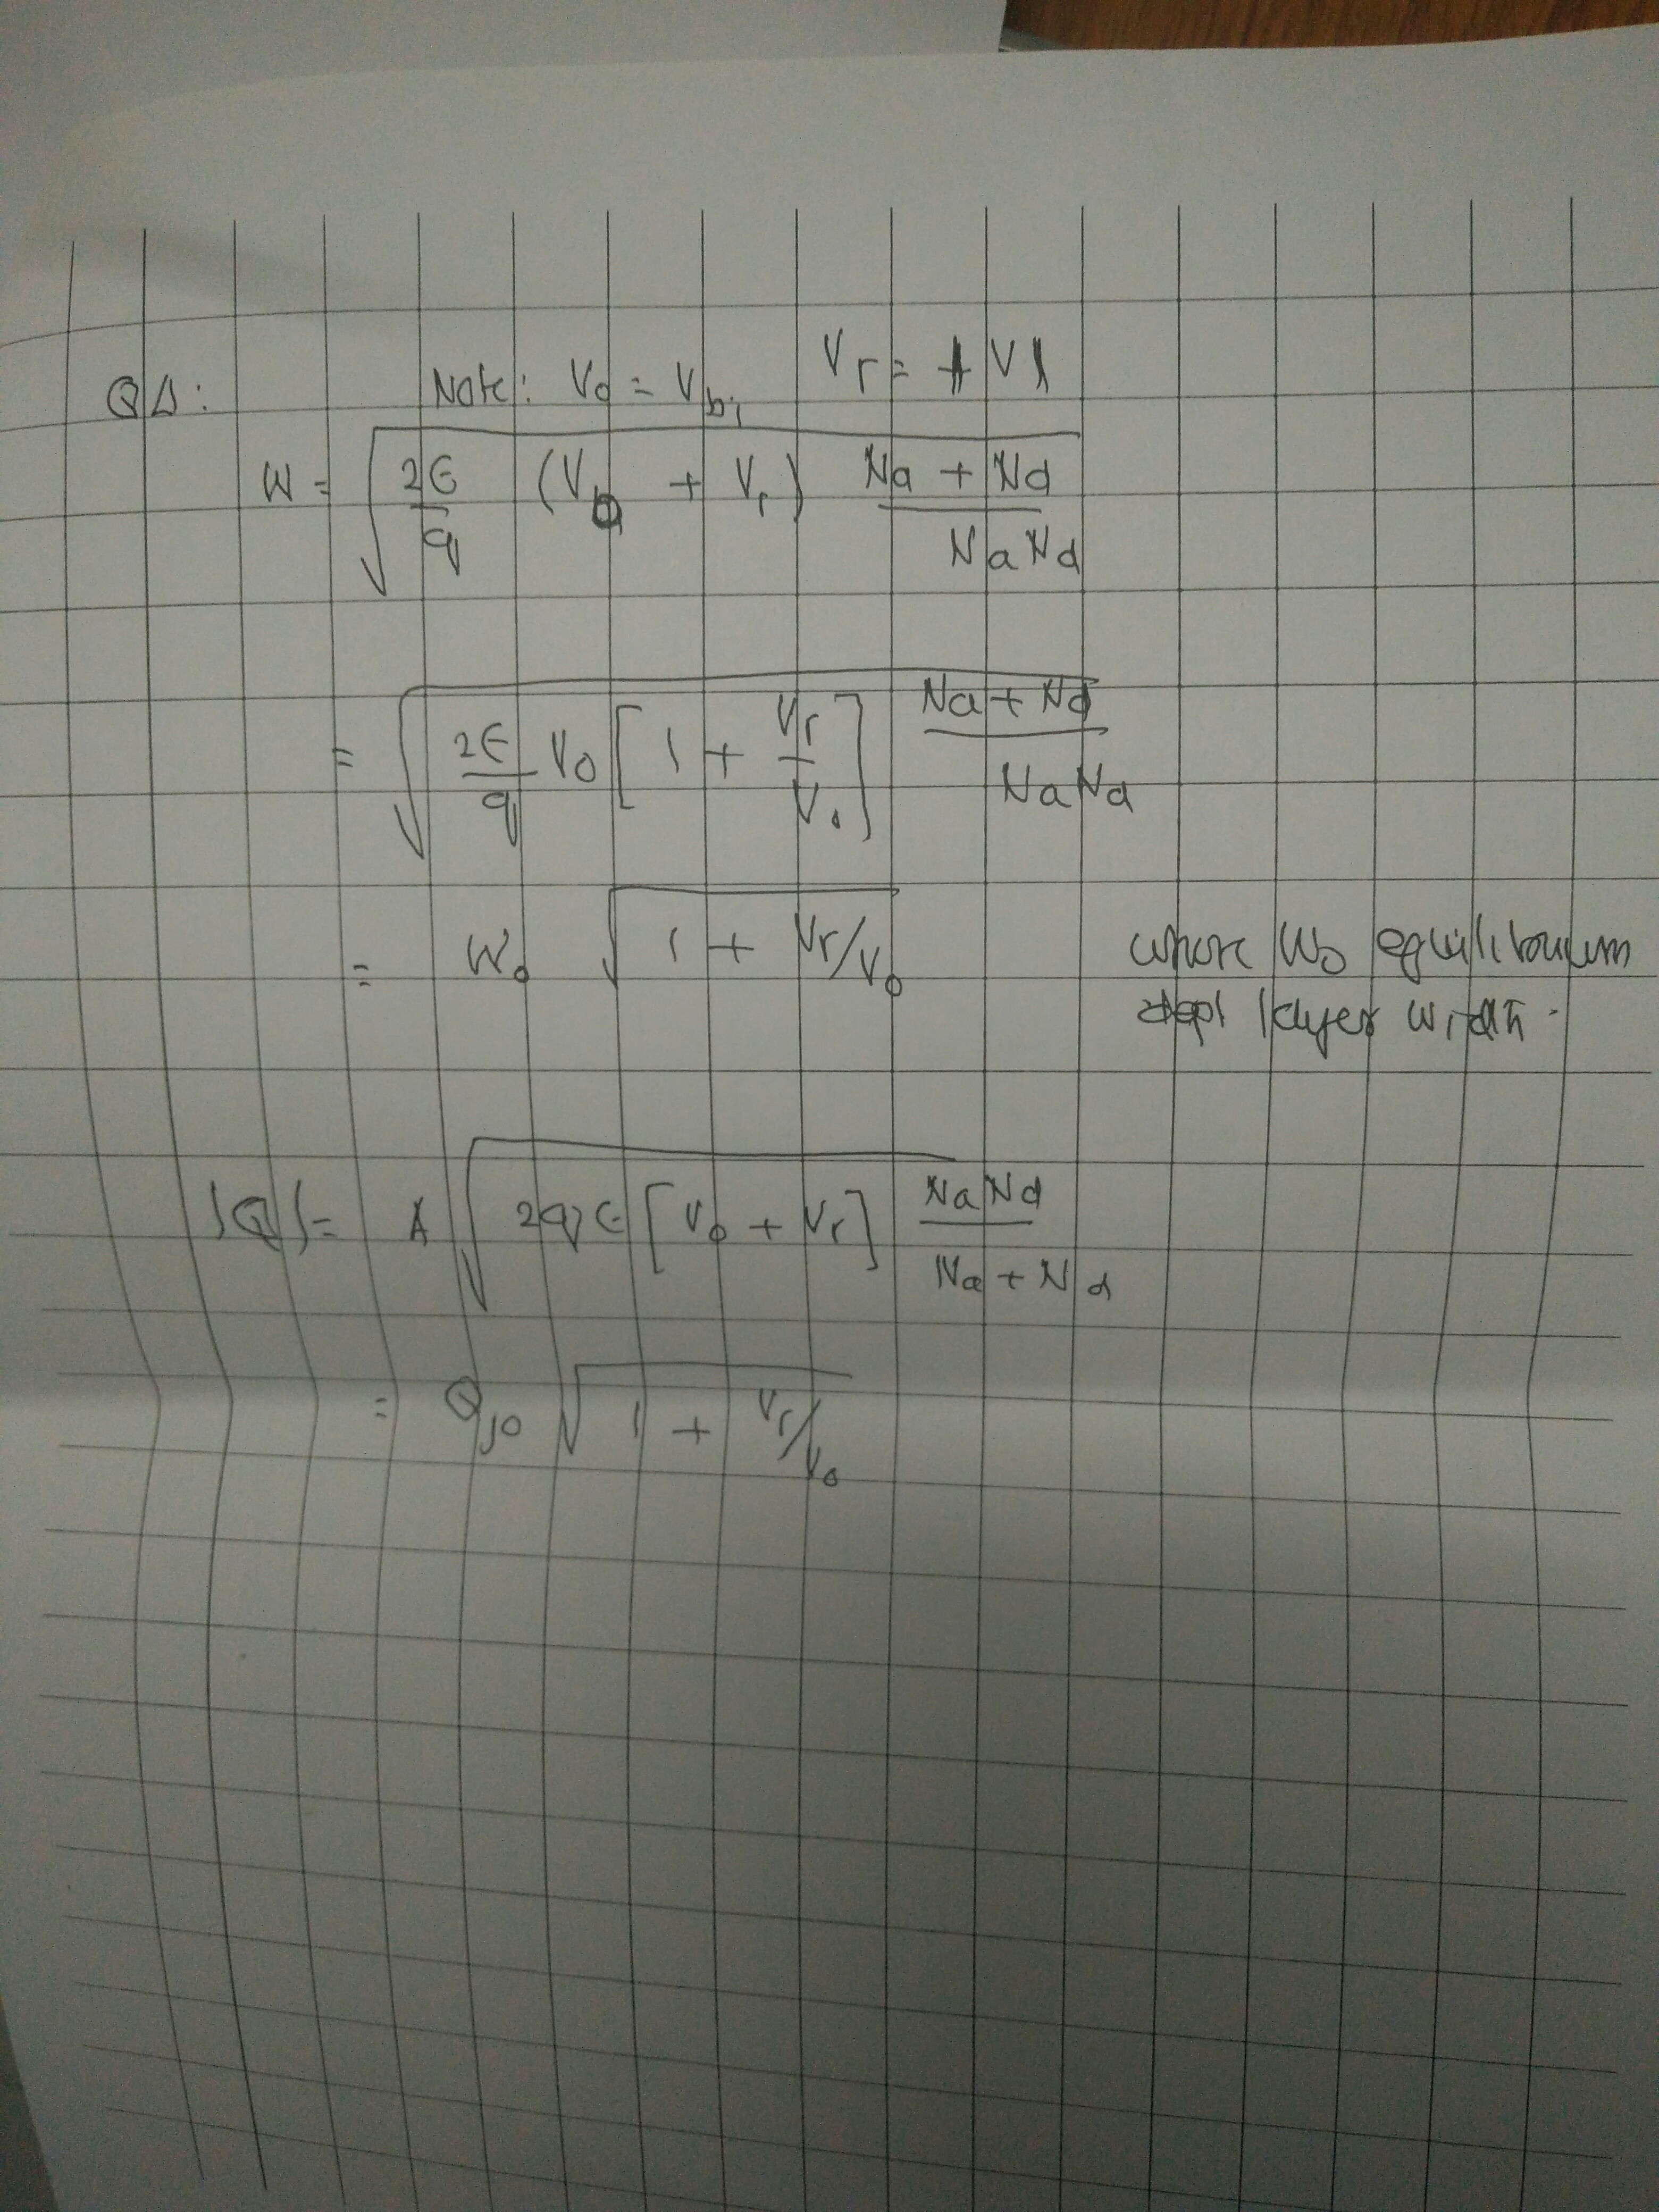 Q4: Note: V0 = Vbi Vr = |V|
W = √( 2ϵ/q (V0 + Vr) (Na + Nd)/(NaNd) )
= √( 2ϵ/q V0 [ 1 + Vr/V0 ] (Na + Nd)/(NaNd) )
= W0 √( 1 + Vr/V0 ) where W0 equilibrium
depl layer width.
|Q| = A √( 2qϵ [ V0 + Vr ] (NaNd)/(Na + Nd) )
= Qj0 √( 1 + Vr/V0 )